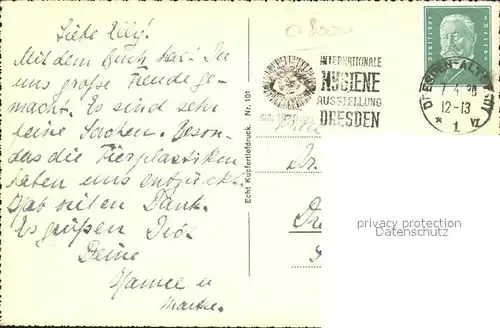 Liebe Elly!
Mit dem Buch hast Du
uns große Freude ge-
macht. Es sind sehr
feine Sachen. Beson-
das die Tierplastiken
haben uns entzückt.
Hab vielen Dank.
Es grüßen Dich
Deine
Hanne u
Echt Kupfertiefdruck. Nr. 101
INTERNATIONALE
HYGIENE
AUSSTELLUNG
DRESDEN
DRESDEN-ALTSTADT
12-13
* 1 VI
Dr.
privacy protection
Datenschutz